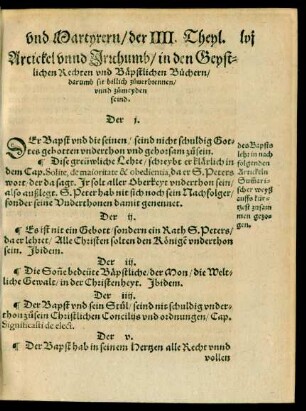 vnd Martyrern/der IIII. Theyl. lvj
Artickel vnnd Jrrthumb/in den Geyst-
lichen Rechten vnd Bäpstlichen Büchern/
darumb sie billich zůuerbrennen/
vnnd zůmeyden
seind.
Der j.
DEr Bapst vnd die seinen/seind nicht schuldig Got-
tes gebotten vnderthon vnd gehorsam zůsein.
¶ Dise grewliche Lehre/schreybt er klärlich in
dem Cap. Solite, de maioritate & obediẽtia, da er S. Peters
wort/der da sagt. Jr solt aller Oberkeyt vnderthon sein/
also außlegt. S. Peter hab nit sich noch sein Nachfolger/
sonder seine Vnderthonen damit gemeynet.
des Bapsts
lehr in nach
folgenden
Artickeln
Summari-
scher weyß
auffs kür-
tzest zusam
men gezo-
gen.
Der ij.
¶ Es ist nit ein Gebott/sondern ein Rath S. Peters/
da er lehret/Alle Christen solten den Königẽ vnderthon
sein. Ibidem.
Der iij.
¶ Die Soñe bedeüte Bäpstliche/der Mon/die Welt-
liche Gewalt/in der Christenheyt. Ibidem.
Der iiij.
¶ Der Bapst vnd sein Stůl/seind nit schuldig vnder-
thon zůsein Christlichen Concilijs vnd ordnungen/Cap.
Significasti de elect.
Der v.
¶ Der Bapst hab in seinem Hertzen alle Recht vnnd
vollen